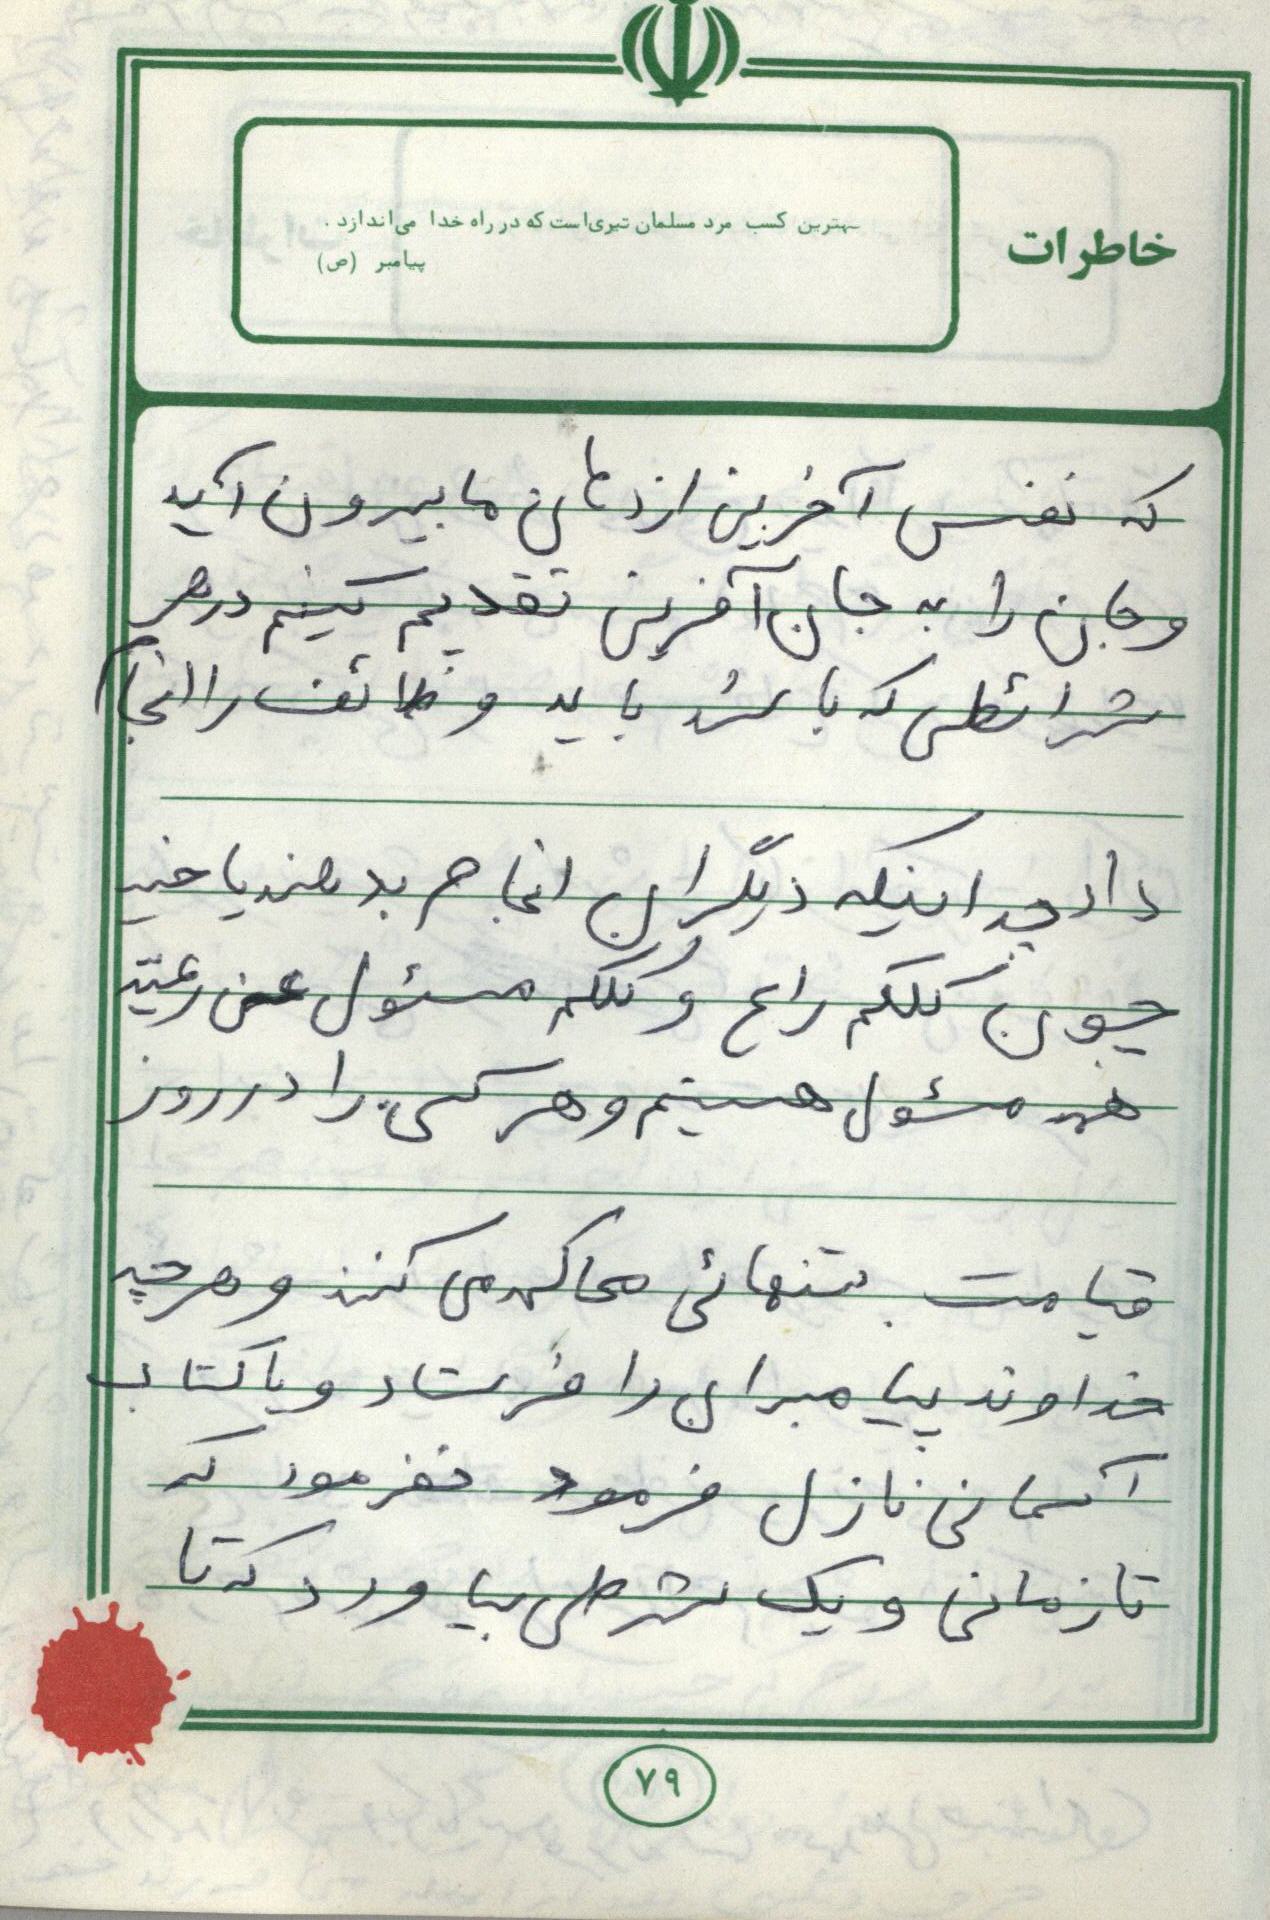 خاطرات
بهترین کسب مرد مسلمان تیری‌است که در راه خدا می‌اندازد .
پیامبر (ص)
که نفس آخرین از دهان ما بیرون آید
و جان را به جان آفرین تقدیم کنیم در هر
شرائطی که باشد باید وظائف را انجام
داد چه اینکه دیگران انجام بدهند یا خیر
چون کلکم راع و کلکم مسئول عن رعیته
همه مسئول هستیم و هر کسی را در روز
قیامت بتنهائی محاکمه می کنند و هر چه
خداوند پیامبران را فرستاد و یا کتاب
آسمانی نازل فرمود نفرمود که
تا زمانی و یک شرطی بیاورد که تا
۷۹